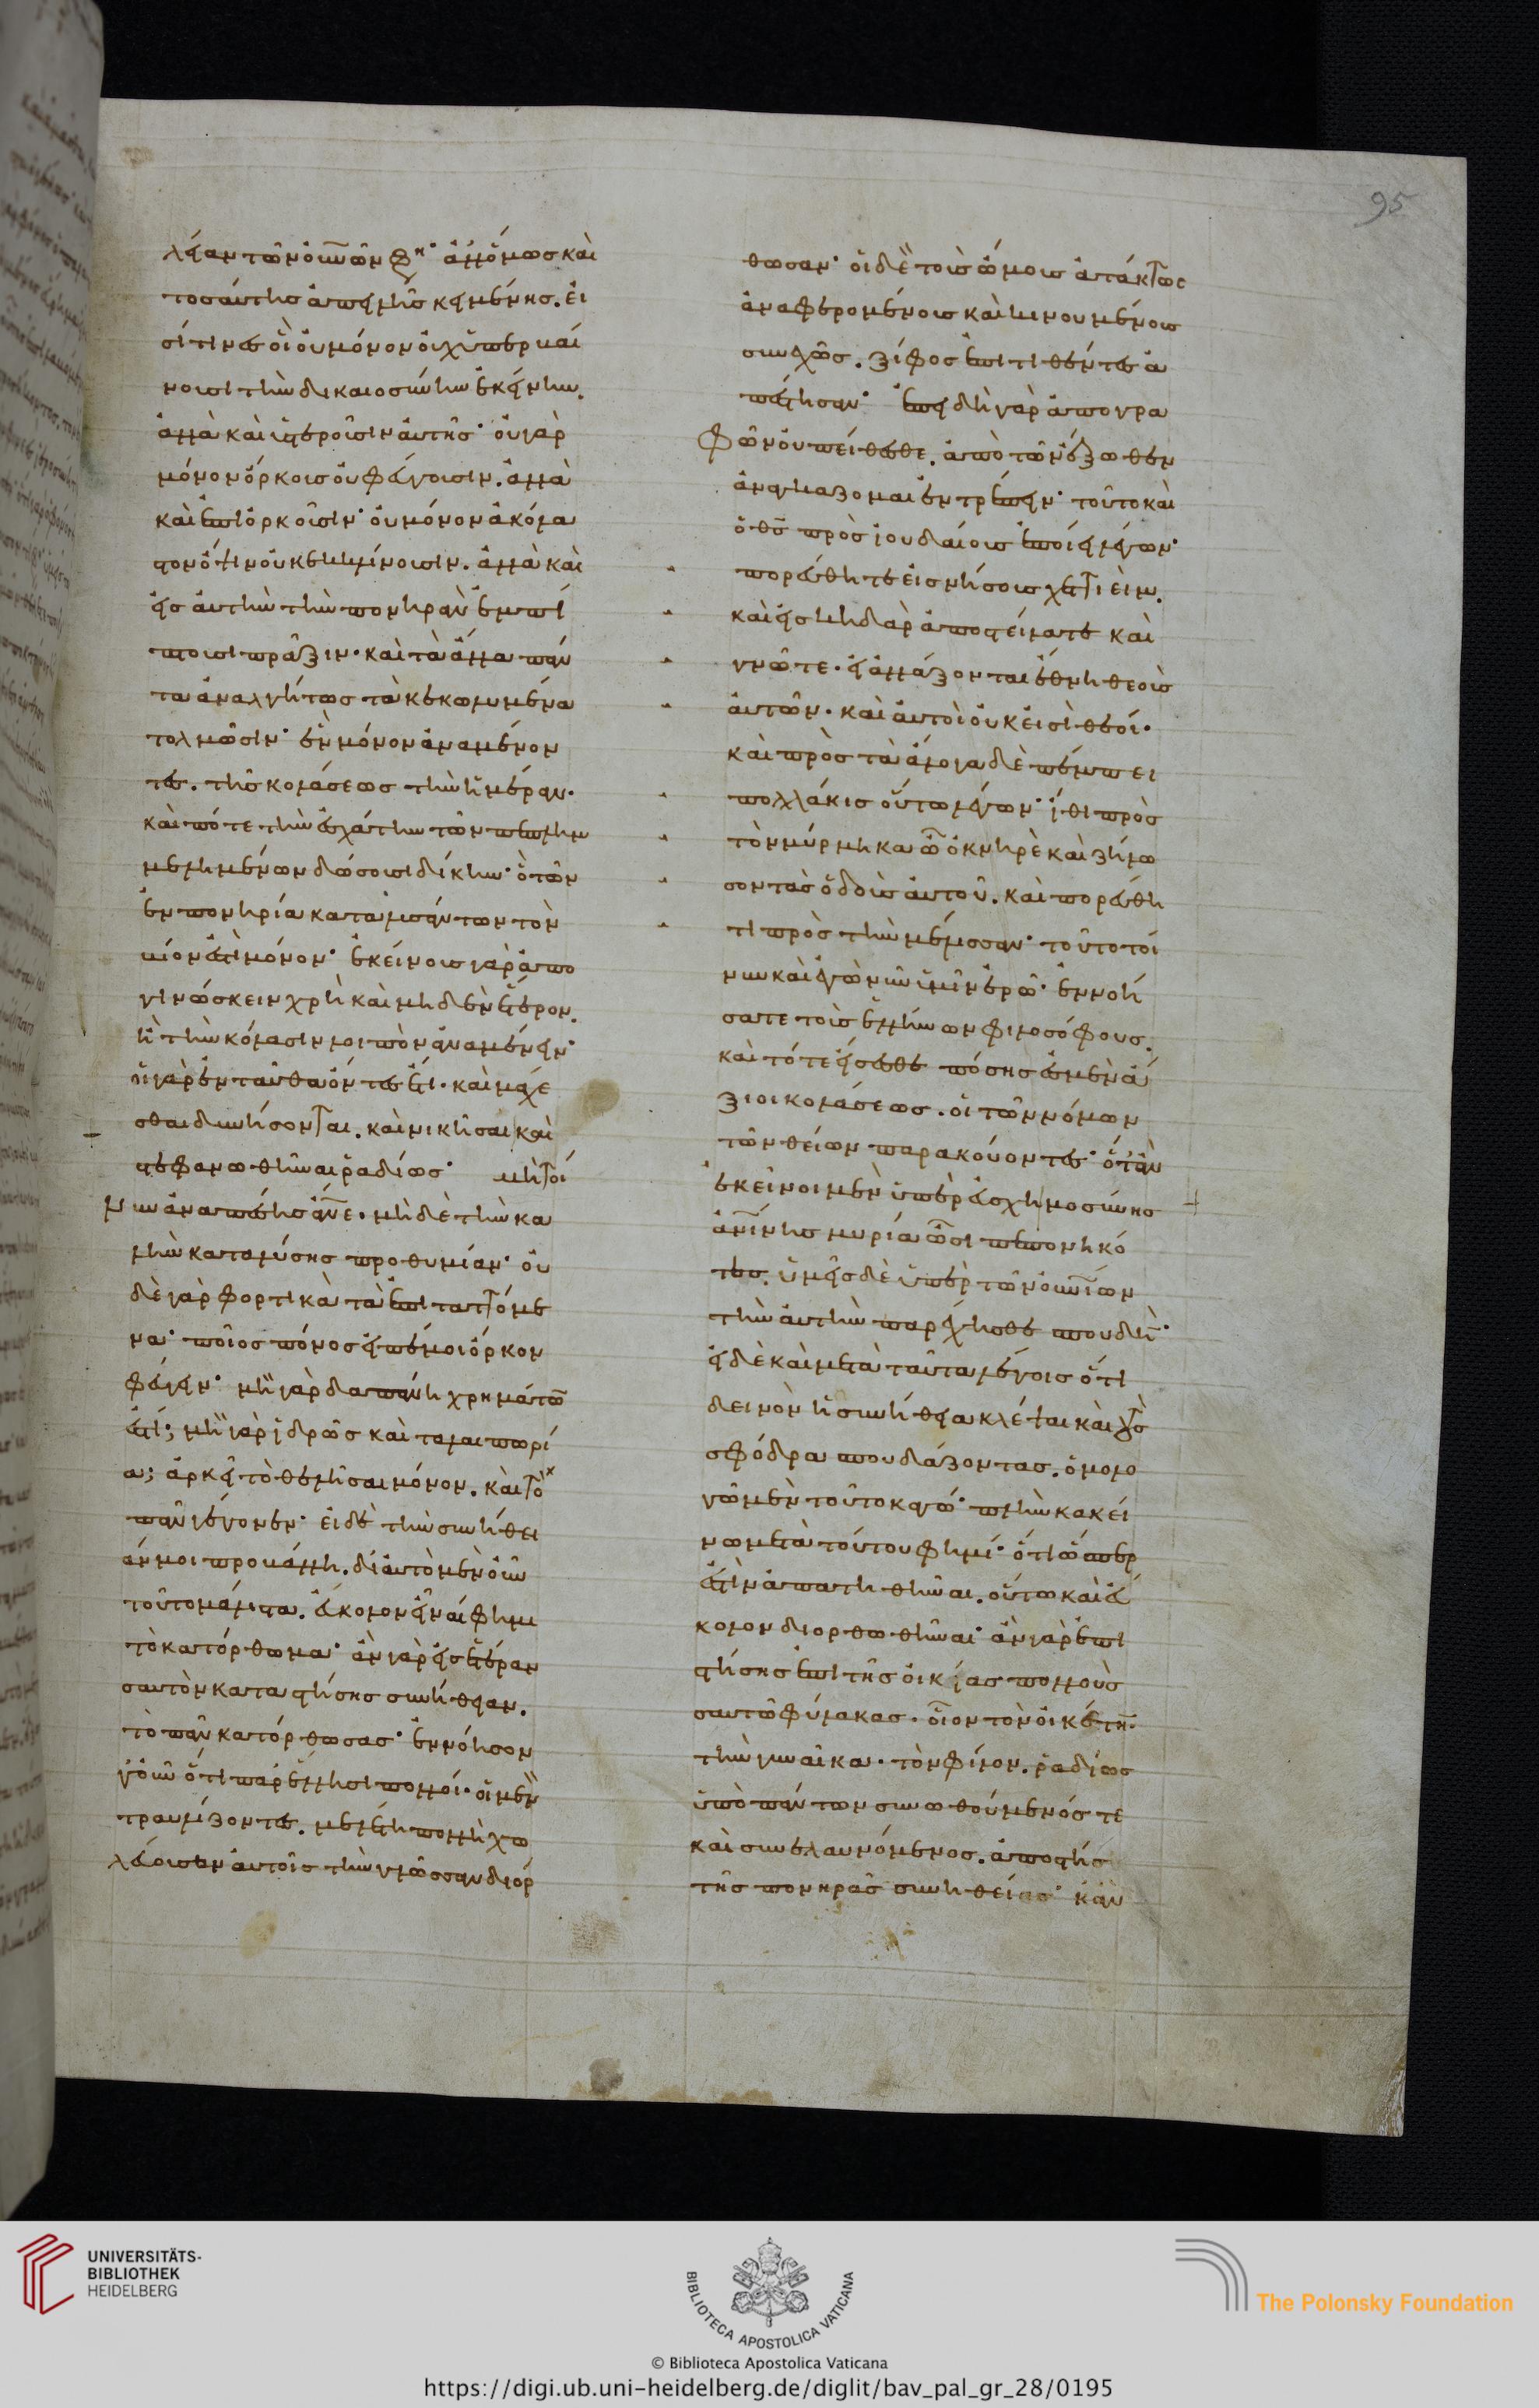 95
λείαν τῶν οὐνῶν φη· ἀλλ' ὅμως καὶ
τοσαύτης ἀπειλῆς κειμένης. εἰ
σί τινες οἳ οὐ μόνον οὐχ ὑπερβαί
νουσι τὴν δικαιοσύνην ἐκείνην.
ἀλλὰ καὶ ὑστεροῦσιν αὐτῆς· οὐ γὰρ
μόνον ὅρκους οὐ φεύγουσιν. ἀλλὰ
καὶ ἐπιορκοῦσιν· οὐ μόνον ἀκόλα
στον ὄψιν οὐκ ἐκκλίνουσιν. ἀλλὰ καὶ
εἰς αὐτὴν τὴν πονηρὰν ἐμπί
πτουσι πρᾶξιν· καὶ τὰ ἄλλα πάν
τα ἀναλγήτως τὰ κεκωλυμένα
τολμῶσιν· ἓν μόνον ἀναμένον
τες. τῆς κολάσεως τὴν ἡμέραν.
καὶ πότε τὴν ἐσχάτην τῶν πεπλημ
μελημένων δώσουσι δίκην· ὃ τῶν
ἐν πονηρία καταλυσάντων τὸν
βίον ἐστὶ μόνον· ἐκείνους γὰρ ἀπο
γινώσκειν χρὴ καὶ μηδὲν ἕτερον.
ἢ τὴν κόλασιν λοιπὸν ἀναμένειν·
οἱ γὰρ ἐνταῦθα ὄντες ἔτι. καὶ μάχε
σθαι δυνήσονται. καὶ νικῆσαι καὶ
στεφανωθῆναι ῥαδίως· μὴ τοί
νυν ἀναπέσης ἄνε. μὴ δὲ τὴν κα
λὴν καταλύσης προθυμίαν· οὐ
δὲ γὰρ φορτικὰ τὰ ἐπιταττόμε
να· ποῖος πόνος εἰπέ μοι ὅρκον
φεύγειν· μὴ γὰρ δαπάνη χρημάτων
ἐστί; μὴ γὰρ ἱδρῶς καὶ ταλαιπωρί
α; ἀρκεῖ τὸ θελῆσαι μόνον. καὶ τὸ
πᾶν γέγονεν· εἰ δὲ τὴν συνήθει
άν μοι προβάλλη. δι' αὐτὸ μὲν οὖν
τοῦτο μάλιστα. εὔκολον εἶναί φημι
τὸ κατόρθωμα· ἂν γὰρ εἰς ἑτέραν
σαυτὸν καταστήσης συνήθειαν.
τὸ πᾶν κατόρθωσας· ἐννόησον
γοῦν ὅτι παρ' ἕλλησι πολλοί. οἱ μὲν
τραυλίζοντες. μελέτη πολλῆ χω
λεύουσαν αὐτοῖς τὴν γλῶσσαν διόρ
θωσαν· οἱ δὲ τοὺς ὤμους ἀτάκτως
ἀναφερομένους καὶ κινουμένους
συνεχῶς. ξίφος ἐπιτιθέντες ἀ
πέστησαν· ἐπειδὴ γὰρ ἀπὸ γρα
φῶν οὐ πείθεσθε. ἀπὸ τῶν ἔξωθεν
ἀναγκάζομαι ἐντρέπειν· τοῦτο καὶ
ὁ θς πρὸς ἰουδαίους ἐποίει λέγων·
πορεύθητε εἰς νήσους χεττιεὶμ.
καὶ εἰς κηδὰρ ἀποστείλατε καὶ
γνῶτε. εἰ ἀλλάξονται ἔθνη θεοὺς
αὐτῶν. καὶ αὐτοὶ οὐκ εἰσὶ θεοί.
καὶ πρὸς τὰ ἄλογα δὲ πέμπει
πολλάκις οὕτω λέγων· ἴθι πρὸς
τὸν μύρμηκα ὦ ὀκνηρὲ καὶ ζήλω
σον τὰς ὁδοὺς αὐτοῦ. καὶ πορεύθη
τι πρὸς τὴν μέλισσαν· τοῦτο τοί
νυν καὶ ἐγὼ νῦν ὑμῖν ἐρῶ· ἐννοή
σατε τοὺς ἑλλήνων φιλοσόφους.
καὶ τότε εἴσεσθε πόσης ἐσμὲν ἄ
ξιοι κολάσεως. οἱ τῶν νόμων
τῶν θείων παρακούοντες· ὅταν
ἐκεῖνοι μὲν ὑπὲρ εὐσχημοσύνης
ἀνίνης μυρία ὦσι πεπονηκό
τες. ὑμεῖς δὲ ὑπὲρ τῶν οὐνίων
τὴν αὐτὴν παρέχησθε σπουδήν·
εἰ δὲ καὶ μετὰ ταῦτα λέγοις ὅτι
δεινὸν ἡ συνήθεια κλέψαι καὶ τοὺς
σφόδρα σπουδάζοντας. ὁμολο
γῶ μὲν τοῦτο κἀγώ· πλὴν κακεί
νο μετὰ τούτου φημί· ὅτι ὥσπερ
ἐστὶν ἀπατηθῆναι. οὕτω καὶ εὔ
κολον διορθωθῆναι· ἂν γὰρ ἐπι
στήσης ἐπὶ τῆς οἰκίας πολλοὺς
σαυτῶ φύλακας. οἷον τὸν οἰκέτην.
τὴν γυναῖκα. τὸν φίλον. ῥαδίως
ὑπὸ πάντων συνωθούμενός τε
καὶ συνελαυνόμενος. ἀποστήση
τῆς πονηρᾶς συνηθείας· κἂν
UNIVERSITÄTS-
BIBLIOTHEK
HEIDELBERG
BIBLIOTECA APOSTOLICA VATICANA
The Polonsky Foundation
© Biblioteca Apostolica Vaticana
https://digi.ub.uni-heidelberg.de/diglit/bav_pal_gr_28/0195